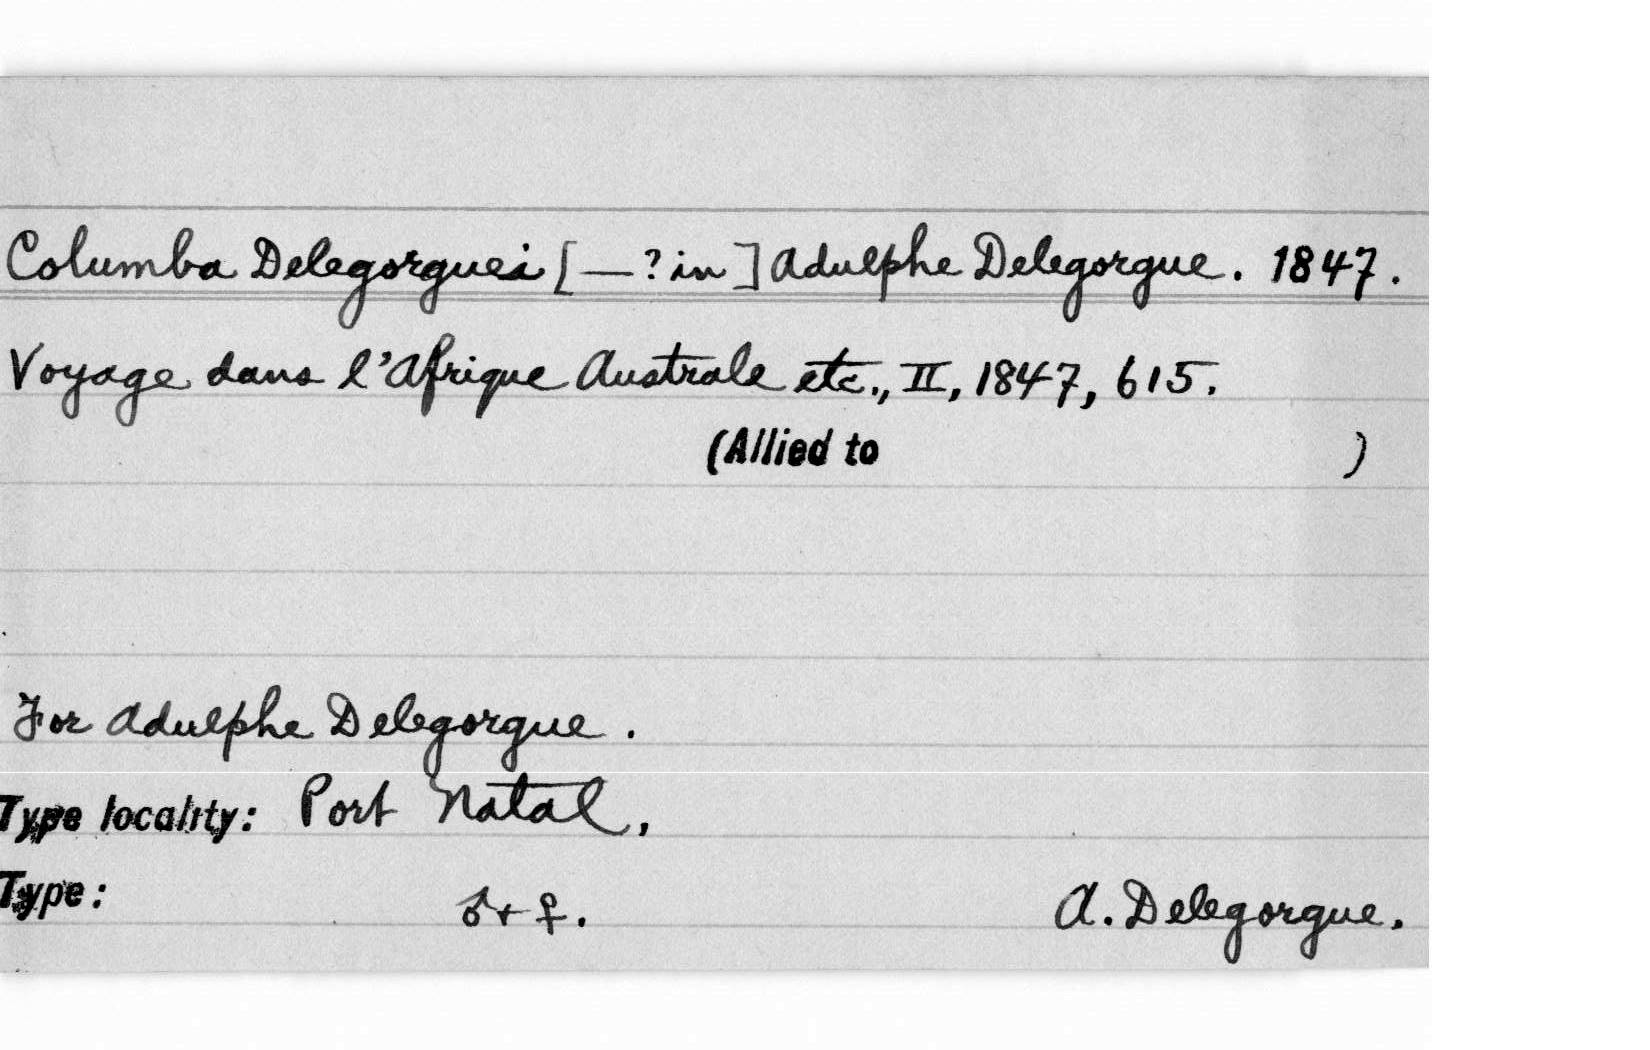 Columba Delegorguei [—? in] Adulphe Delegorgue. 1847.
Voyage dans l'Afrique Australe etc., II, 1847, 615.
(Allied to )
For Adulphe Delegorgue.
Type locality: Port Natal,
Type: ♂ + ♀. A. Delegorgue.